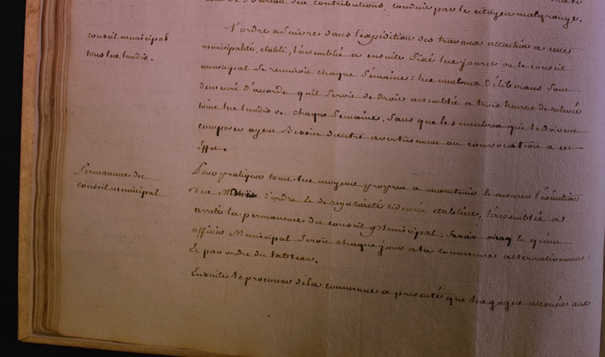 du Bureau des contributions, conduit par le citoyen malgrange.
conseil municipal
tous les lundis.
L'ordre à suivre dans l'expédition des travaux attachés à cette
municipalité, établi, l'assemblée a ensuite fixé les jours où le conseil
municipal se réunirait chaque semaine: les membres délibérans sont
demeuré d'accorde qu'il seroit de droit assemblée a trois heures de relevée
tous les lundis de chaque semaine, sans que les membres qui le doivent
composer ayent besoin d'autre avertissement ou convocation a cet
effet.
Permanence du
conseil municipal
Pour pratiquer tous les moyens propres a maintenir
des d'ordre le de régularité établies, l'assemblée a
arrêté la permanence du conseil municipal.
officier Municipal seroit chaque jour a la commune alternativement
le par ordre du tableau.
Ensuite le procureur de la commune a présenté que